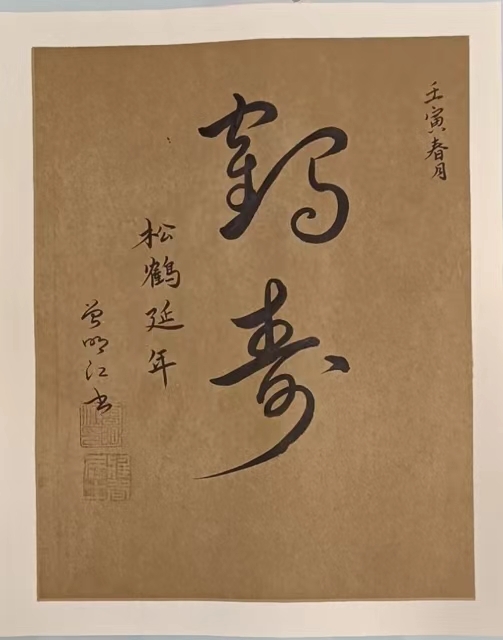 壬寅春月
鹤寿
松鹤延年
曾明江书